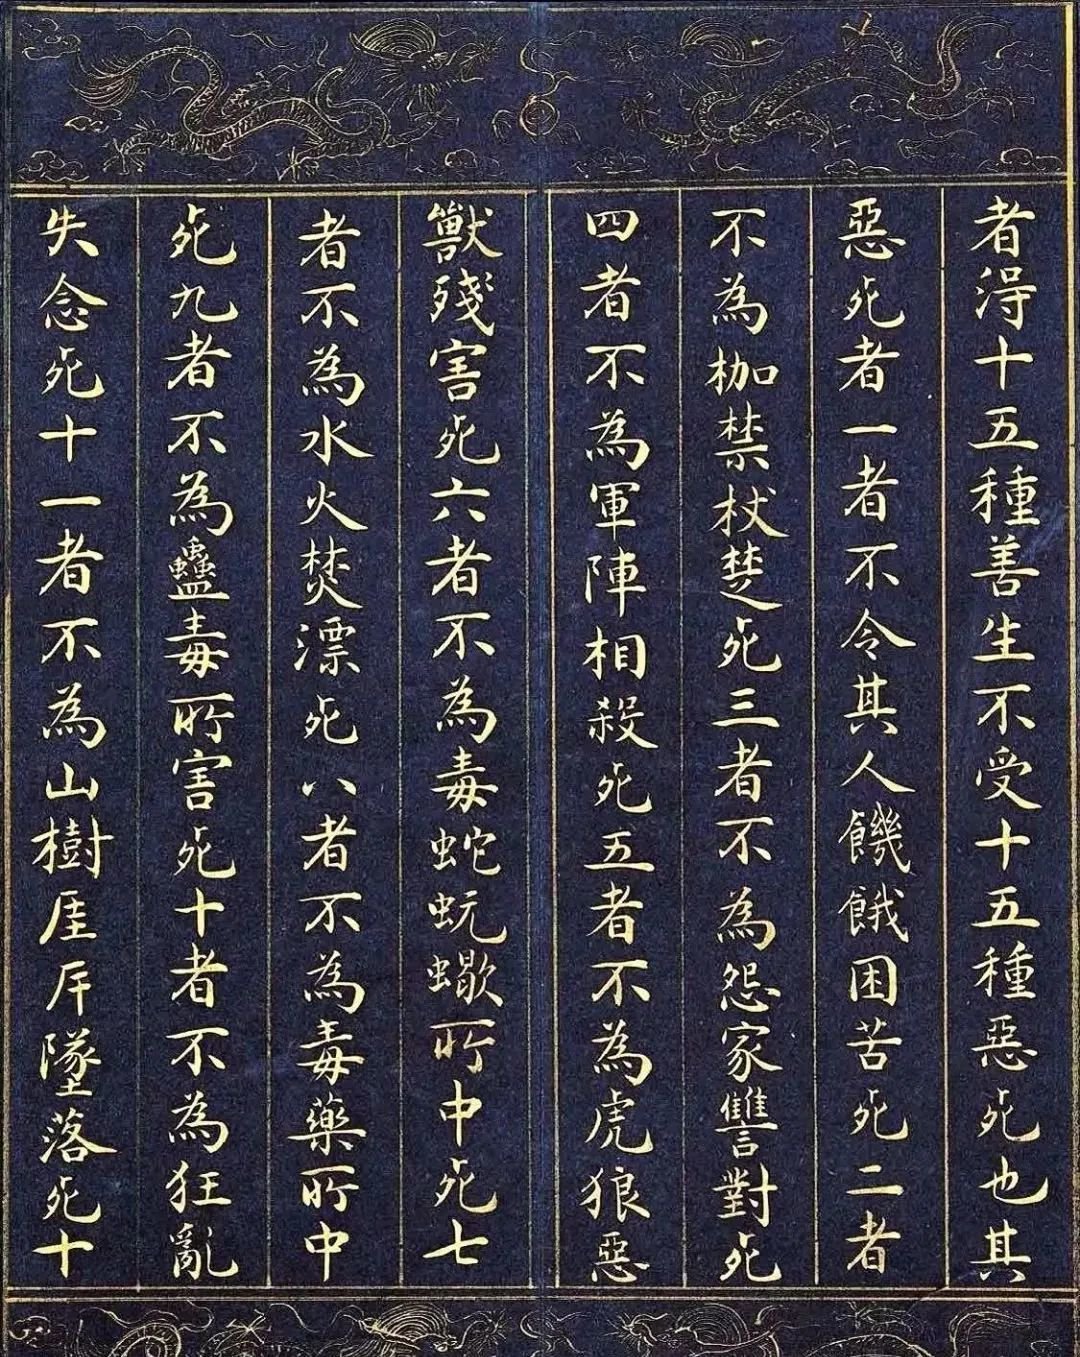 者得十五種善生不受十五種惡死也其
惡死者一者不令其人饑餓困苦死二者
不為枷禁杖楚死三者不為怨家讐對死
四者不為軍陣相殺死五者不為虎狼惡
獸殘害死六者不為毒蛇蚖蠍所中死七
者不為水火焚漂死八者不為毒藥所中
死九者不為蠱毒所害死十者不為狂亂
失念死十一者不為山樹厓岸墜落死十